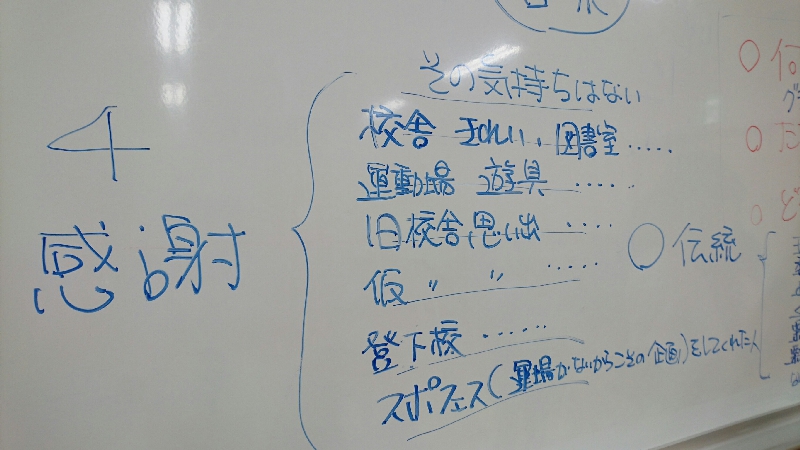 4
感謝
その気持ちはない
校舎 きれい、図書室.....
運動場 遊具.....
旧校舎,思い出.....
仮 〃 〃 .....
登下校......
スポフェス(運場がないからこその企画)をしてくれた人
○伝統
○何
○
○ど